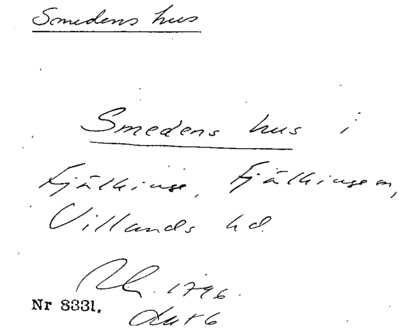 Smedens hus
Smedens hus i
Fjälkinge, Fjälkinge sn,
Villands hd.
1796.
Nr 8331.